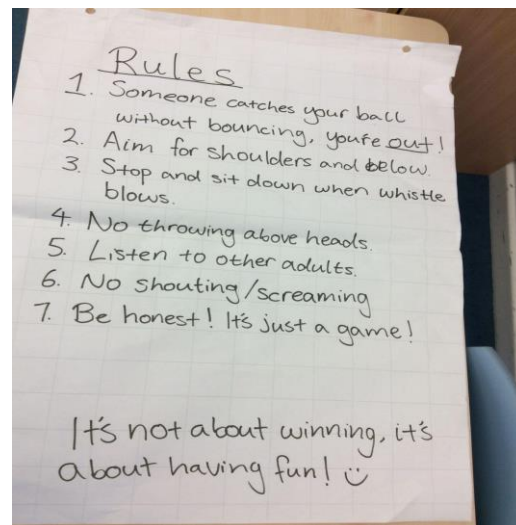 Rules
1. Someone catches your ball
without bouncing, you're out!
2. Aim for shoulders and below.
3. Stop and sit down when whistle
blows.
4. No throwing above heads.
5. Listen to other adults.
6. No shouting/screaming
7. Be honest! It's just a game!
It's not about winning, it's
about having fun! ☺